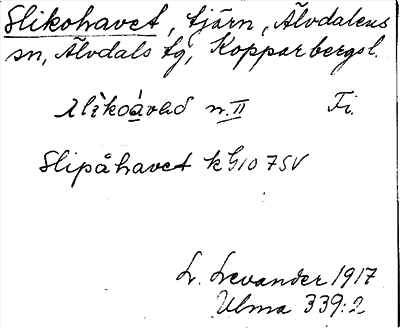 Slikohavet, tjärn, Älvdalens
sn, Älvdals tg, Kopparbergsl.
n. II Fi.
Slipåhavet kG107SV
L. Levander 1917
Ulma 339:2